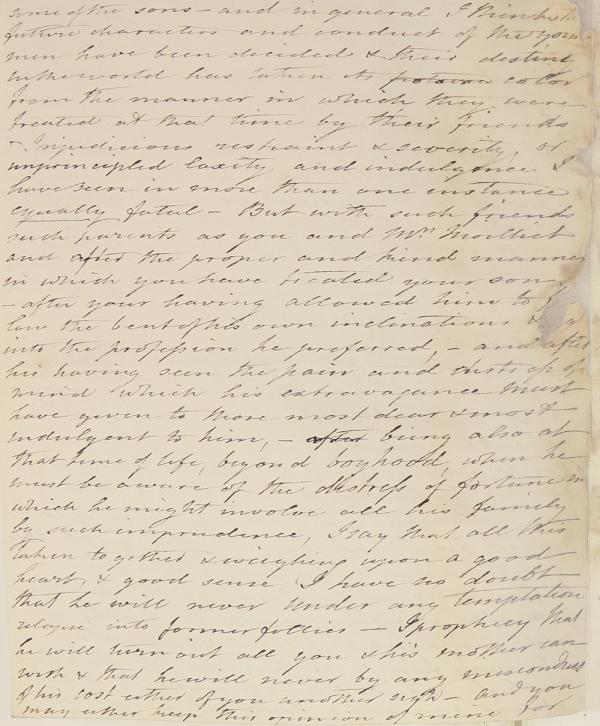 some of the sons – and in general I think the
future characters and conduct of the youn
men have been decided & their destiny
in the world has taken its color
from the manner in which they were
treated at that time by their friends
– Injudicious restraint & severity, or
unprincipled laxity and indulgence I
have seen in more than one instance
equally fatal – But with such friends
such parents as you and Mrs Moilliet
and after the proper and kind manner
in which you have treated your son
– after your having allowed him to
low the bent of his own inclinations &
into the profession he preferred, – and after
his having seen the pain and distress of
mind which his extravagance must
have given to those most dear & most
indulgent to him, – after being also at
that time of life, beyond boyhood, when he
must be aware of the distress of fortune in
which he might involve all his family
by such imprudence, I say that all this
taken together & weighing upon a good
heart, & good sense I have no doubt
that he will never under any temptation
relapse into former follies – I prophecy that
he will turn out all you & his mother can
wish & that he will never by any misconduct
of his cost either of you another sigh – and you
may either keep this opinion of mine for